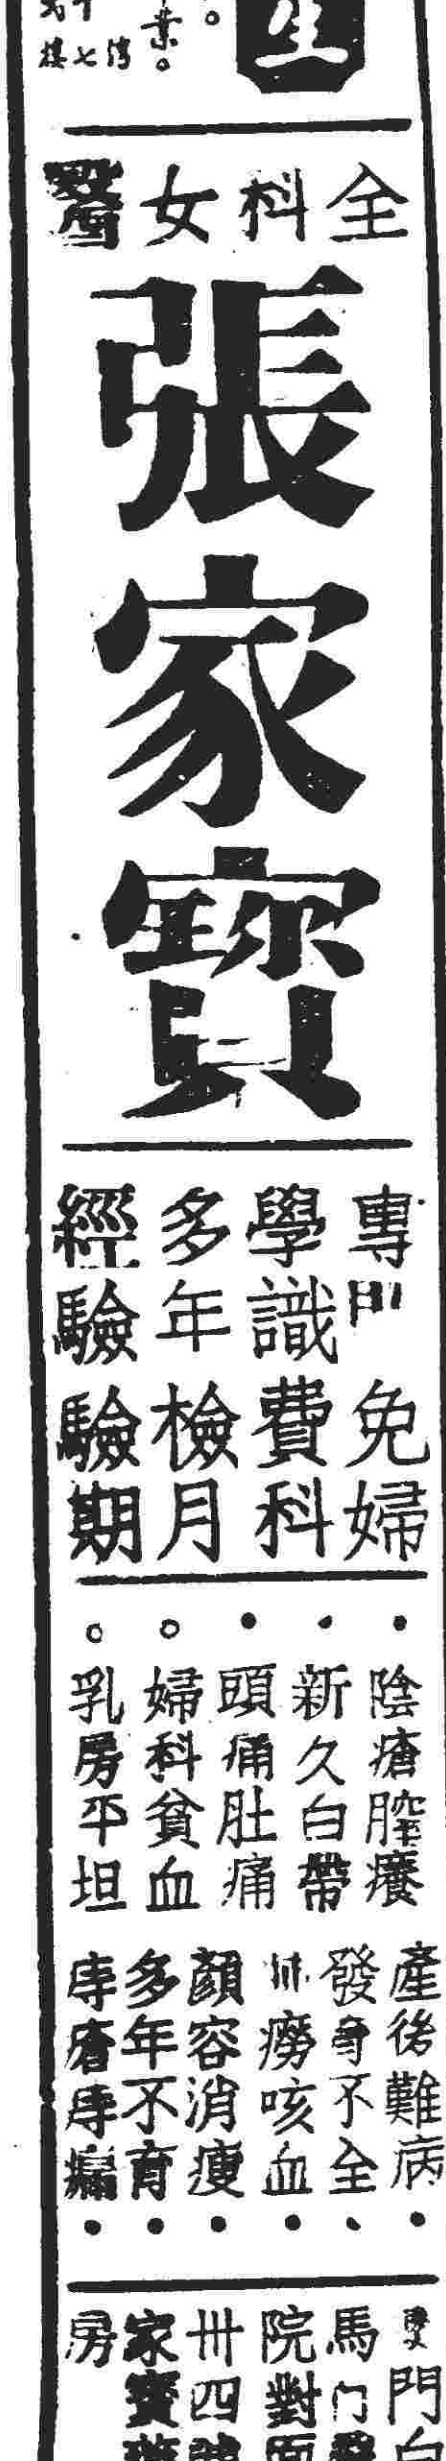 生
全科女醫
張家寶
專門
學識
多年
經驗
免費檢驗
婦科月期
陰瘡膣癢
新久白帶
頭痛肚痛
婦科貧血
乳房平坦
產後難病
發育不全
癆咳血
顏容消瘦
多年不育
門
馬
院對面
卅四號
家寶
房